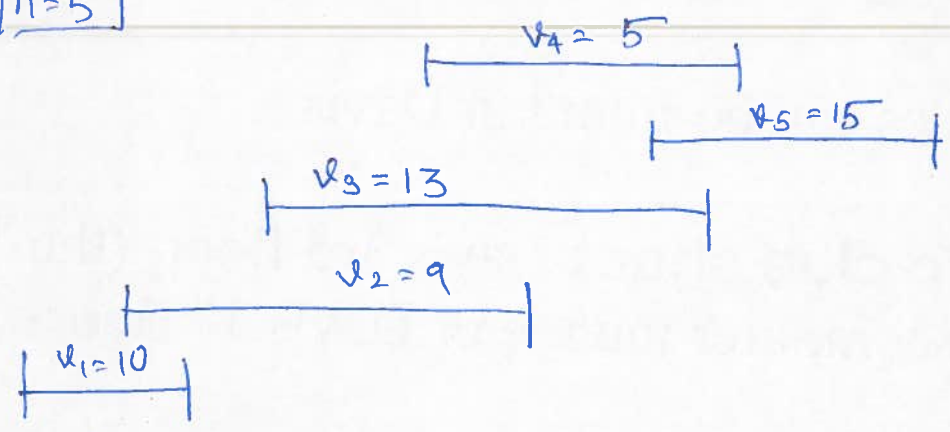 n=5
v4 = 5
v5 = 15
v3 = 13
v2 = 9
v1 = 10